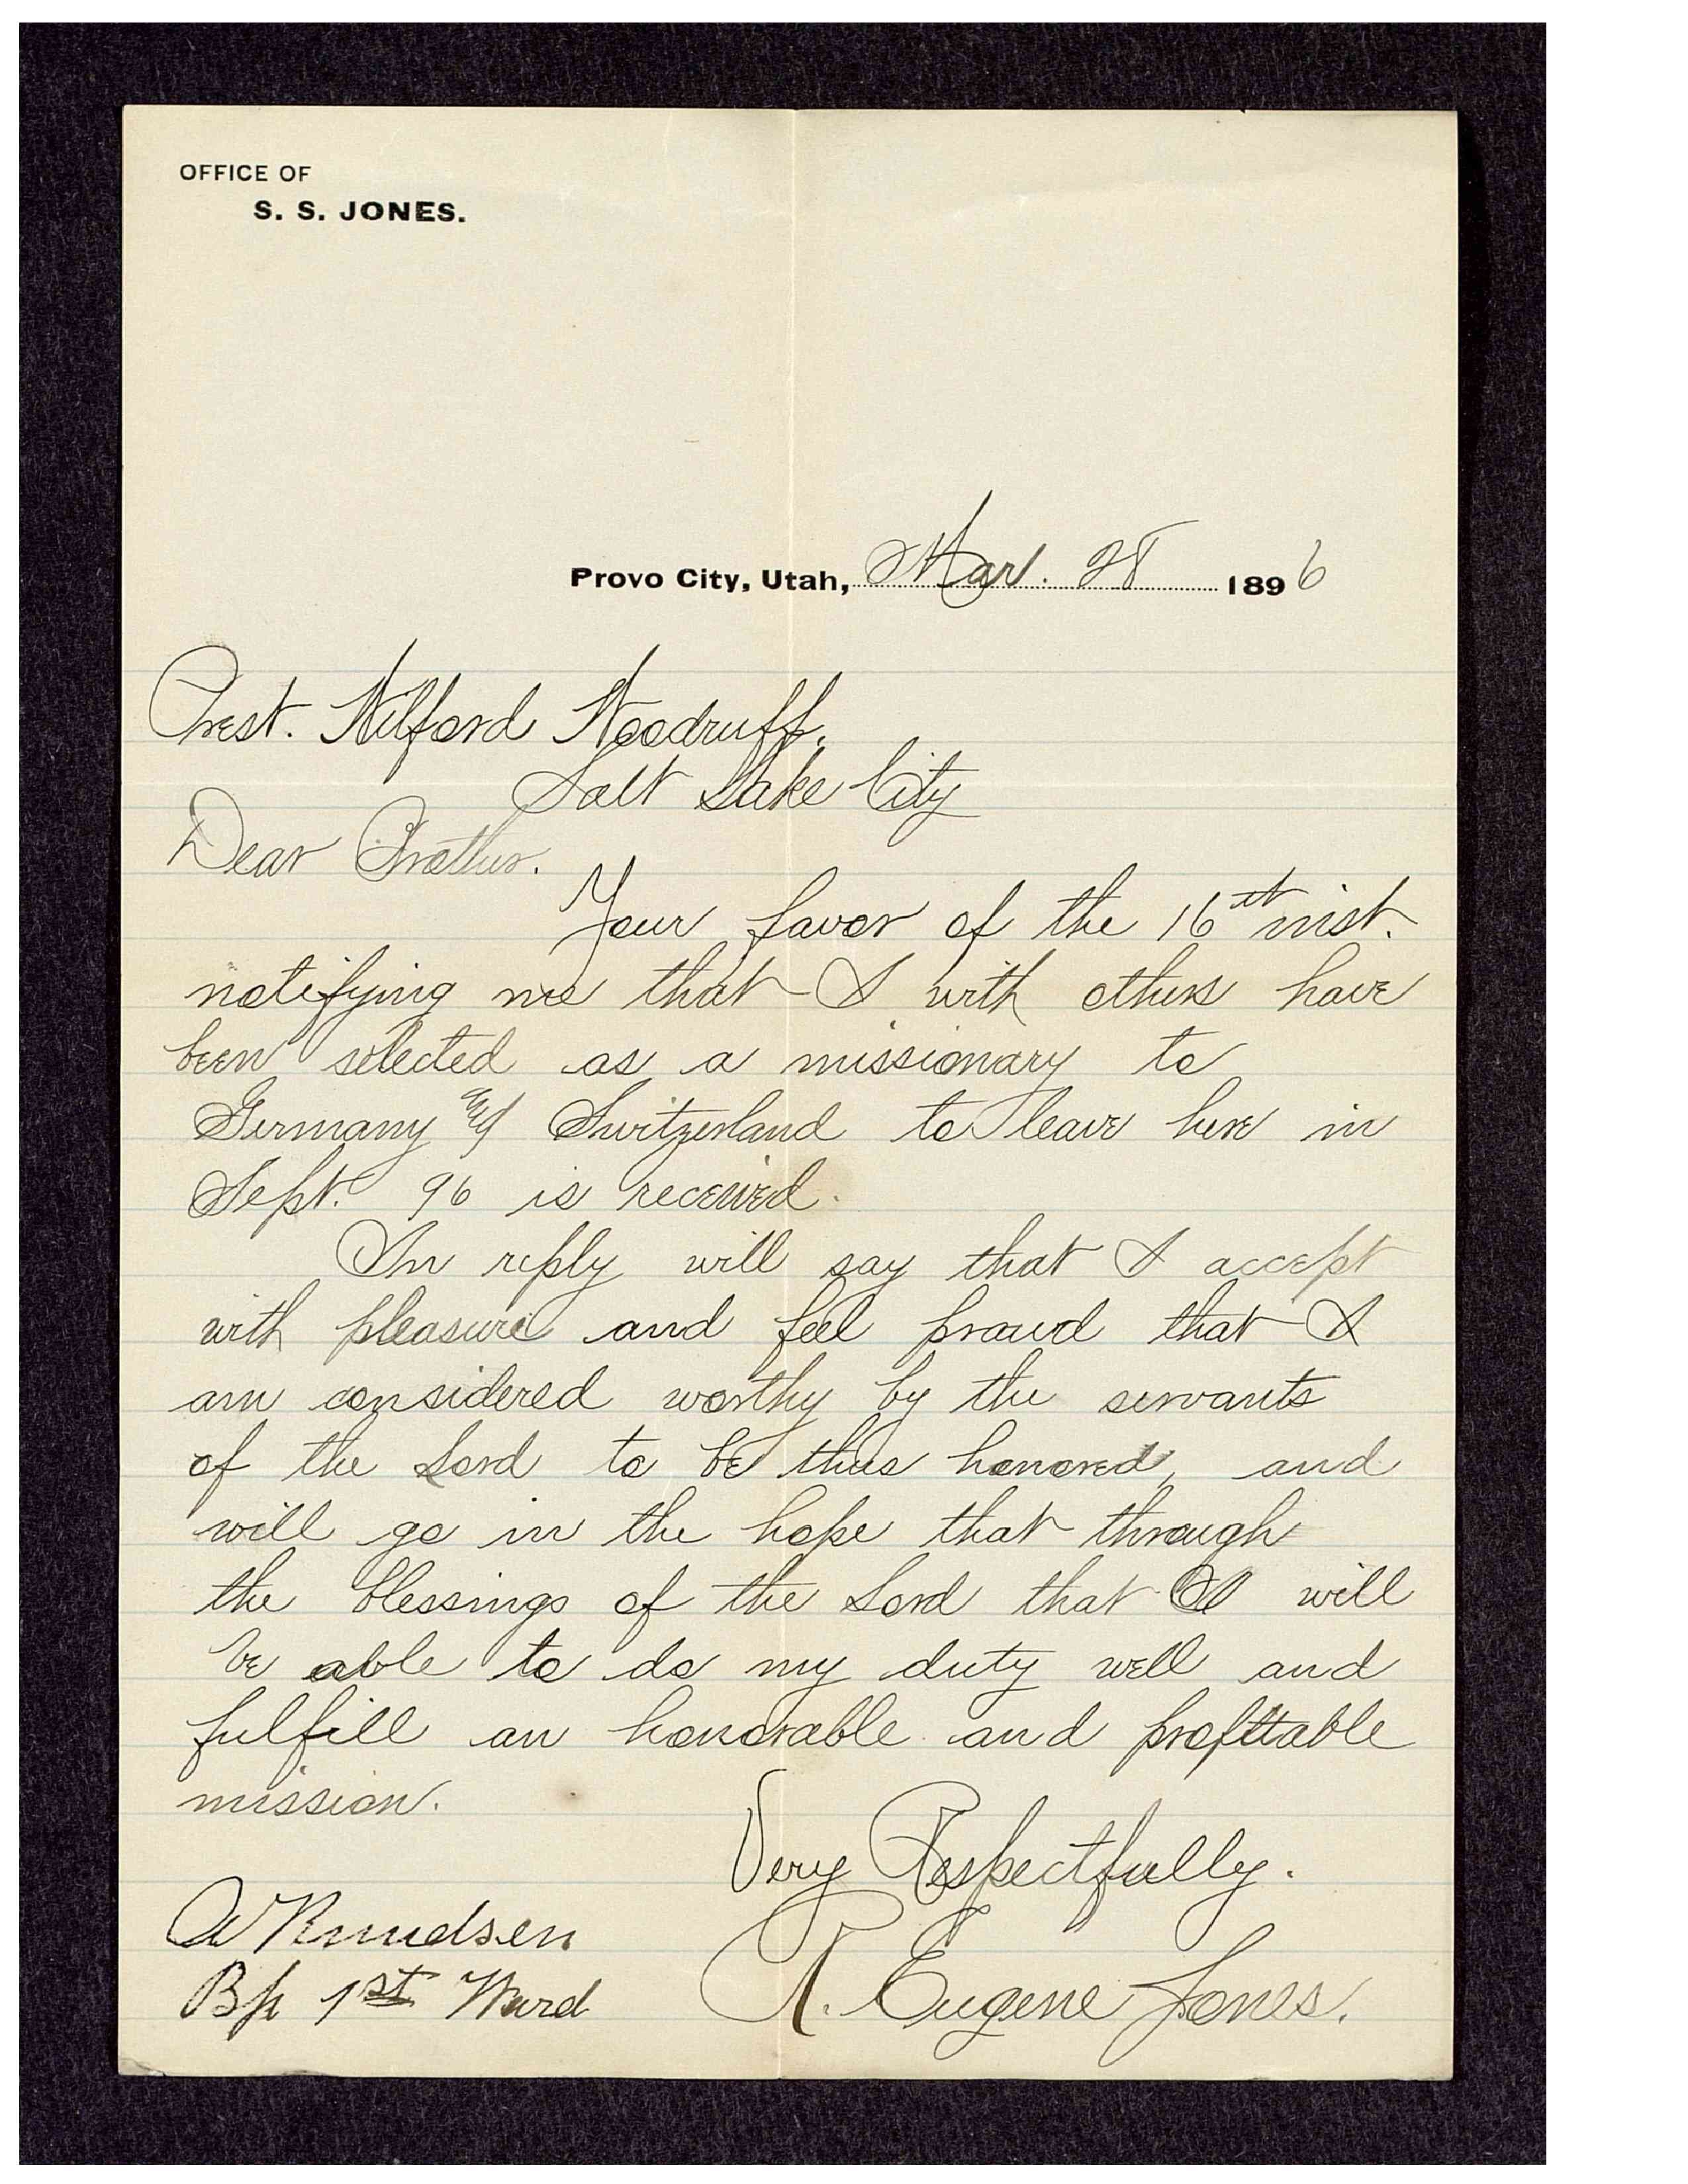 OFFICE OF
S. S. JONES.
Provo City, Utah, Mar. 28 1896
Prest. Wilford Woodruff.
Salt Lake City
Dear Brother.
Your favor of the 16th inst.
notifying me that I with others have
been selected as a missionary to
Germany and Switzerland to leave here in
Sept. 96 is received.
In reply will say that I accept
with pleasure and feel proud that I
am considered worthy by the servants
of the Lord to be thus honored, and
will go in the hope that through
the blessings of the Lord that I will
be able to do my duty well and
fulfill an honorable and profitable
mission.
Very Respectfully.
R. Eugene Jones.
Knudsen
Bp 1st Ward